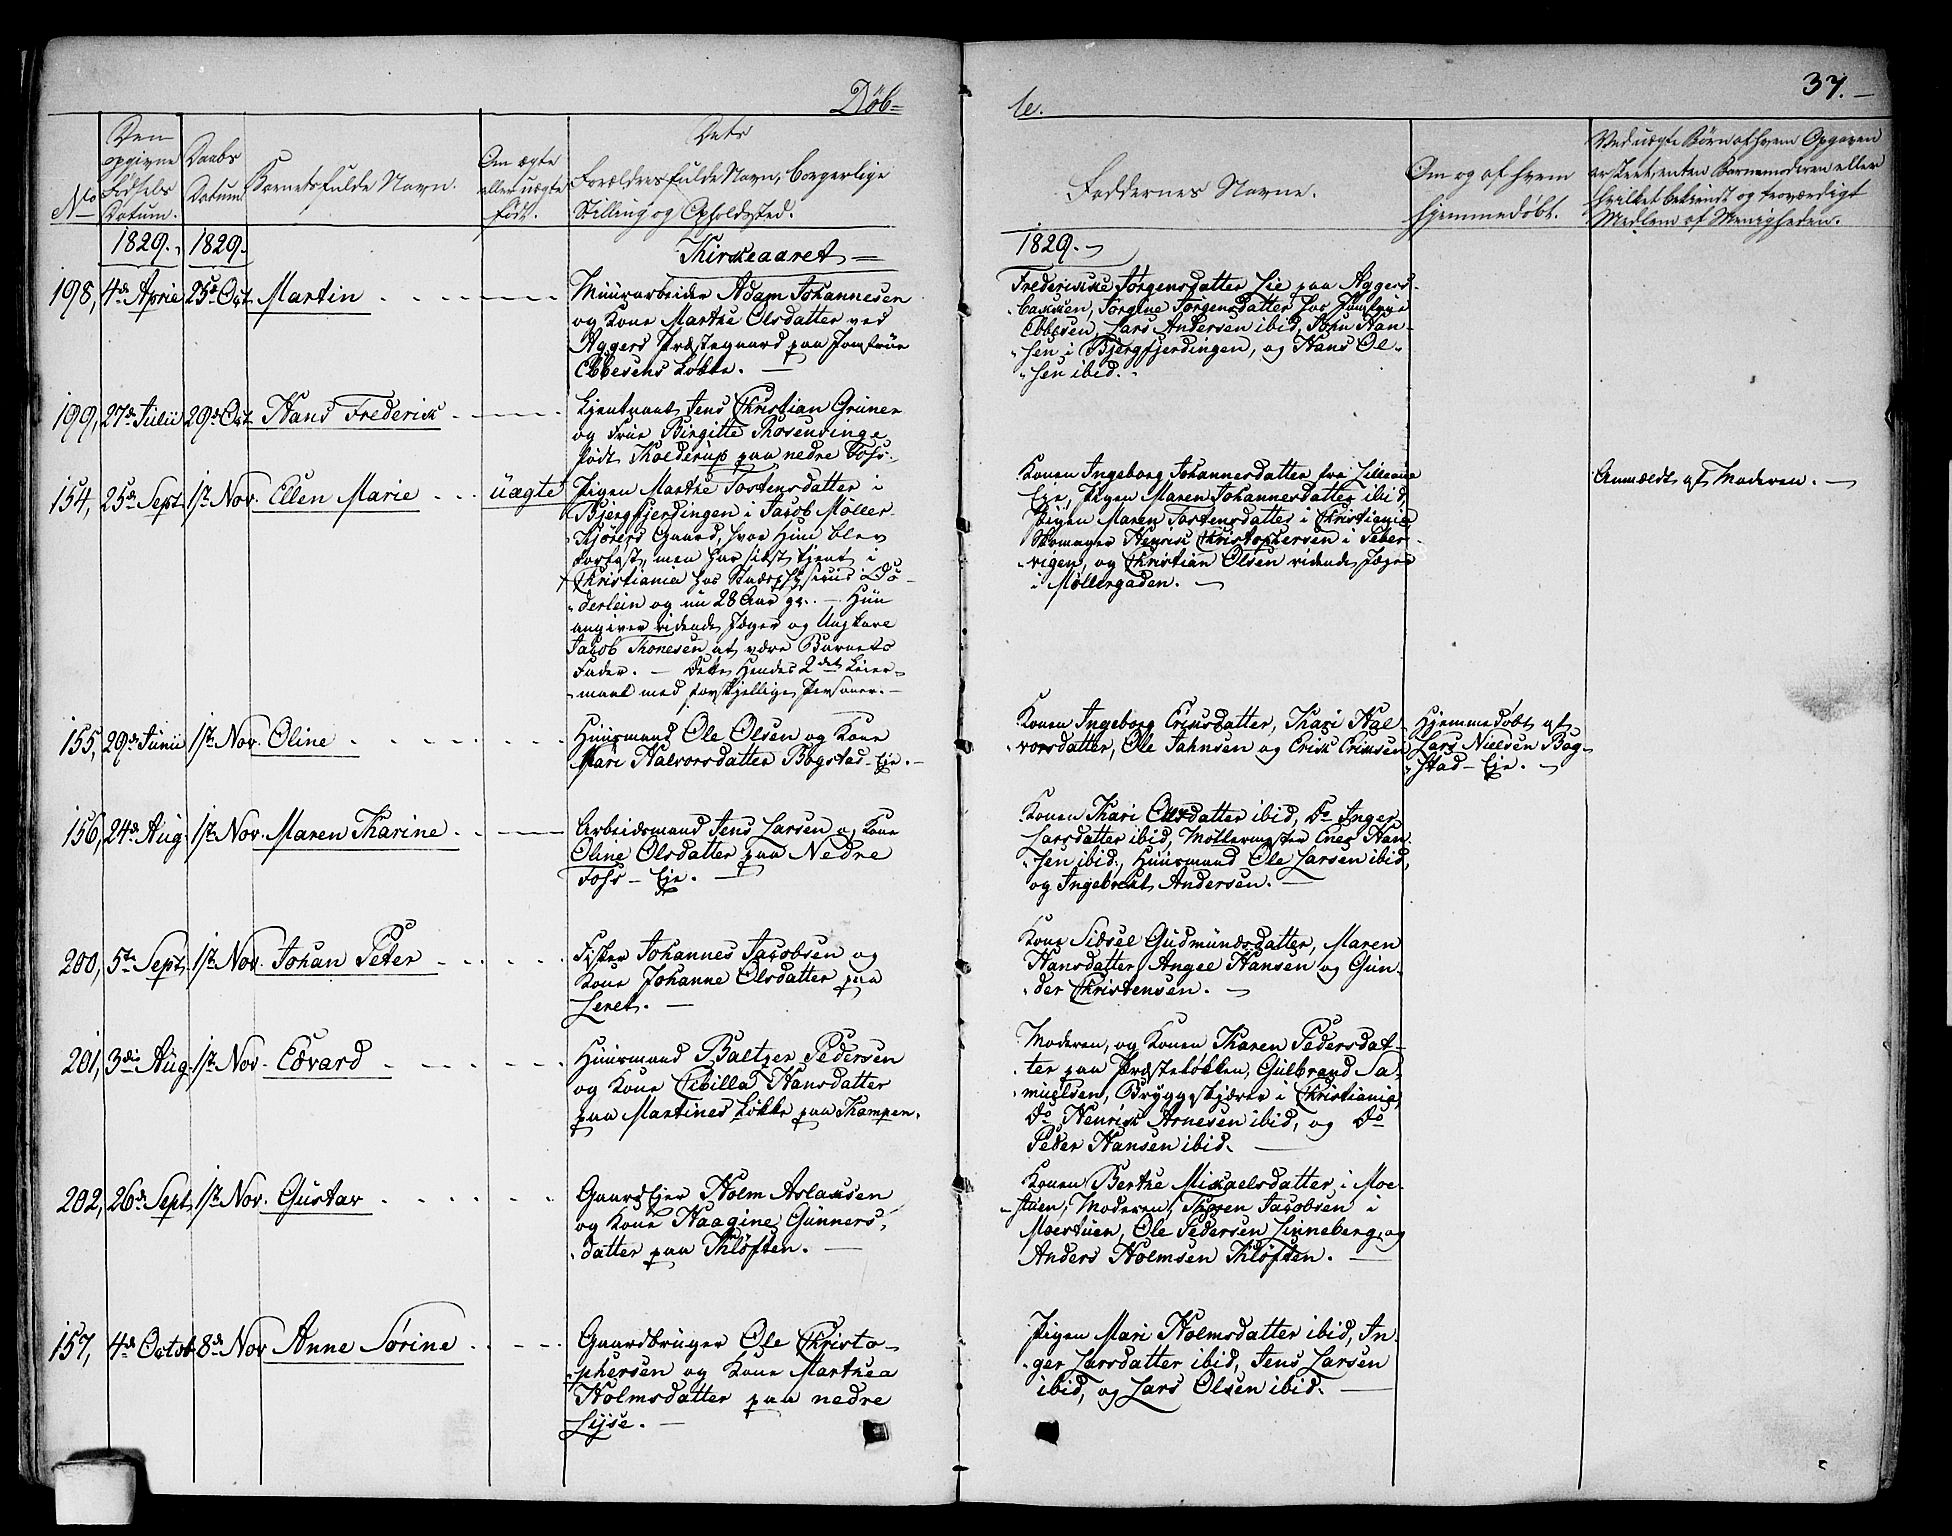 Døb=
le.
37.
No
Den opgivne Fødsels Datum.
Daabs Datum
Barnets fulde Navn.
Om ægte eller uægte født.
Dets Forældres fulde Navn, borgerlige Stilling og Opholdsted.
Faddernes Navne.
Om og af hvem hjemmedøbt.
Ved uægte Børn af hvem Opgaven er skeet, enten Barnemoderen eller hvilket bekiendt og troværdigt Medlem af Menigheden.
1829. 1829. Kirkeaaret 1829.
198, 4de April 25de Oct. Martin
Muurarbeider Adam Johannesen
og Kone Marthe Olsdatter ved
Aggers Præstegaard paa Jomfrue
Ebbesens Løkke.
Frederikke Jørgensdatter Lie paa Aggers-
bakken, Jørgine Jørgensdatter hos Jomfrue
Ebbesen, Lars Andersen ibid, John Han-
sen i Bjergfjerdingen, og Hans Ol-
sen ibid.
199, 27de Julii 29de Oct. Hans Frederik
Lieutnant Jens Christian Grüner
og Frue Birgitte Rosenvinge
født Kolderup paa nedre Foss.
154, 25de Sept. 1ste Nov. Ellen Marie uægte
Pigen Marthe Tostensdatter i
Bjergfjerdingen i Jacob Møller
Kjørers Gaard, hvor Hun blev
forløst, men har sidst tjent i
Christiania hos Stadsphysicus Dö-
derlein og nu 28 Aar gl. Hun
angiver ridende Jæger og Ungkarl
Jacob Thonesen at være Barnets
Fader. Dette Hendes 2det Leier-
maal med forskjellige Personer.
Konen Ingeborg Johannesdatter fra Lilleaue
Eje, Pigen Maren Johannesdatter ibid,
Pigen Maren Tostensdatter i Christiania
Skomager Henrik Christophersen i Peber-
vigen, og Christian Olsen ridende Jæger
i Møllergaden.
Anmeldt af Moderen.
155, 29de Junii 1ste Nov. Oline
Huusmand Ole Olsen og Kone
Mari Halvorsdatter Bogstad-Eje.
Konen Ingeborg Eriksdatter, Kari Hal
vorsdatter, Ole Jahnsen og Erik Eriksen
Hjemmedøbt af
Lars Nielsen Bog-
stad-Eje.
156, 24de Aug. 1ste Nov. Maren Karine
Arbeidsmand Jens Larsen og Kone
Oline Olsdatter paa Nedre
Foss-Eje.
Konen Kari Olsdatter ibid, Do Inger
Larsdatter ibid, Møllermester Ener Han-
sen ibid, Huusmand Ole Larsen ibid,
og Ingebreth Andersen.
200, 5te Sept. 1ste Nov. Johan Peter
Fisker Johannes Jacobsen og
Kone Johanne Olsdatter paa
Leret.
Kone Sidsel Gudmundsdatter, Maren
Hansdatter, Angel Hansen og Gun-
der Christensen.
201, 3die Aug. 1ste Nov. Edvard
Huusmand Baltzer Pedersen
og Kone Cibilla Hansdatter
paa Martines Løkke paa Kampen.
Moderen, og Konen Karen Pedersdat-
ter paa Præsteløkken, Gulbrand Sa-
muelsen, Bryggeskjører i Christiania,
Do Henrik Arnesen ibid, og Do
Peder Hansen ibid.
202, 26de Sept. 1ste Nov. Gustav
Gaardejer Holm Aslaksen
og Kone Haagine Gunners-
datter paa Kløften.
Konen Berthe Mikkelsdatter i Moe-
stuen, Moderen, Thosen Jacobsen i
Moestuen, Ole Pedersen Linneberg, og
Anders Holmsen Kløften.
157, 4de Octob. 8de Nov. Anne Sørine
Gaardbruger Ole Christo-
phersen og Kone Marthea
Holmsdatter paa nedre
Lijse.
Pigen Mari Holmsdatter ibid, In-
ger Larsdatter ibid, Jens Larsen
ibid, og Lars Olsen ibid.